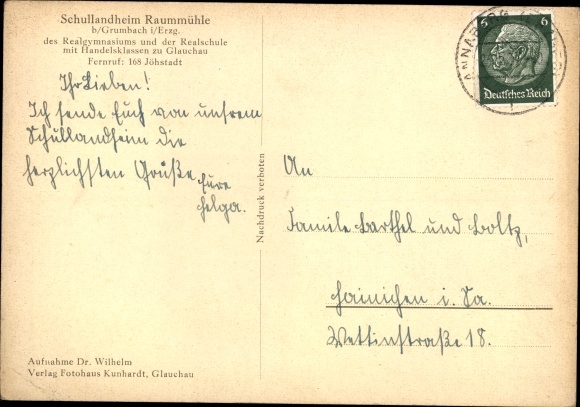 Schullandheim Raummühle
b/Grumbach i/Erzg.
des Realgymnasiums und der Realschule
mit Handelsklassen zu Glauchau
Fernruf: 168 Jöhstadt
Ihr Lieben!
Ich sende Euch von unsrem
Schullandheim die
herzlichsten Grüße
Eure
Helga.
Nachdruck verboten
5 6
Deutsches Reich
ANNABERG
An
Familie Barthel und Boltz,
Hainichen i. Sa.
Wettinstraße 18.
Aufnahme Dr. Wilhelm
Verlag Fotohaus Kunhardt, Glauchau